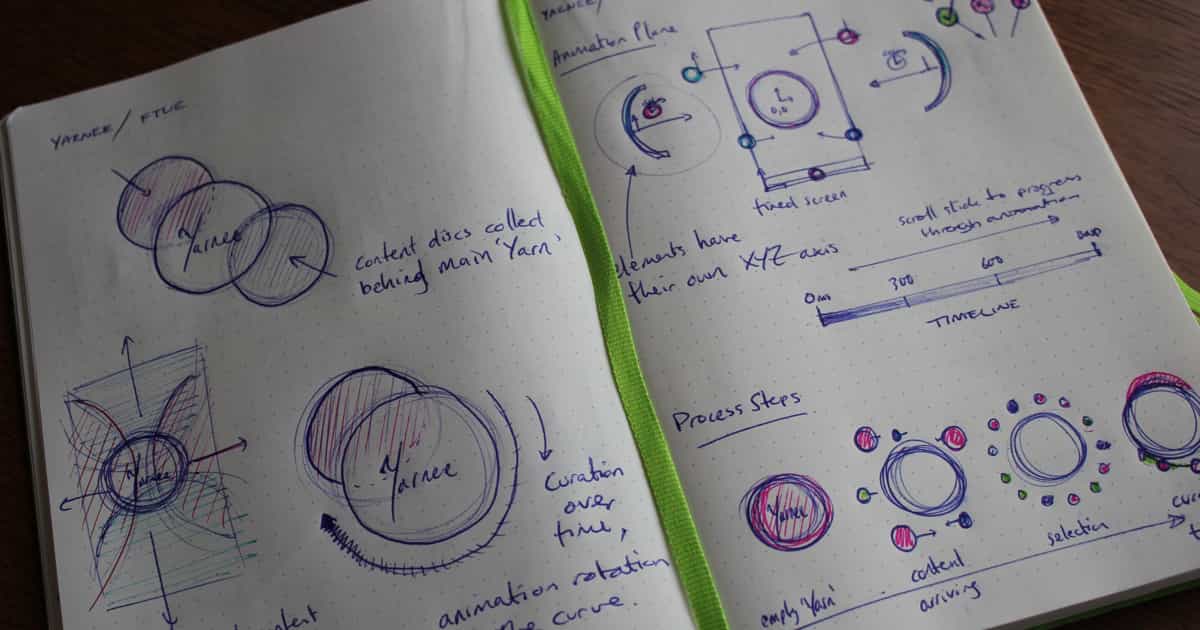 YARNEE / FTUE
Yarnee
content discs collected
behind main 'Yarn'
Yarnee
Yarnee
Curation
over
time,
animation rotation
curve.
YARNEE/
Animation Plane
0,0
fixed screen
elements have
their own XYZ axis
scroll stick to progress
through animation
0ms
300
600
TIMELINE
Process Steps
Yarnee
empty 'Yarn'
content
arriving
selection